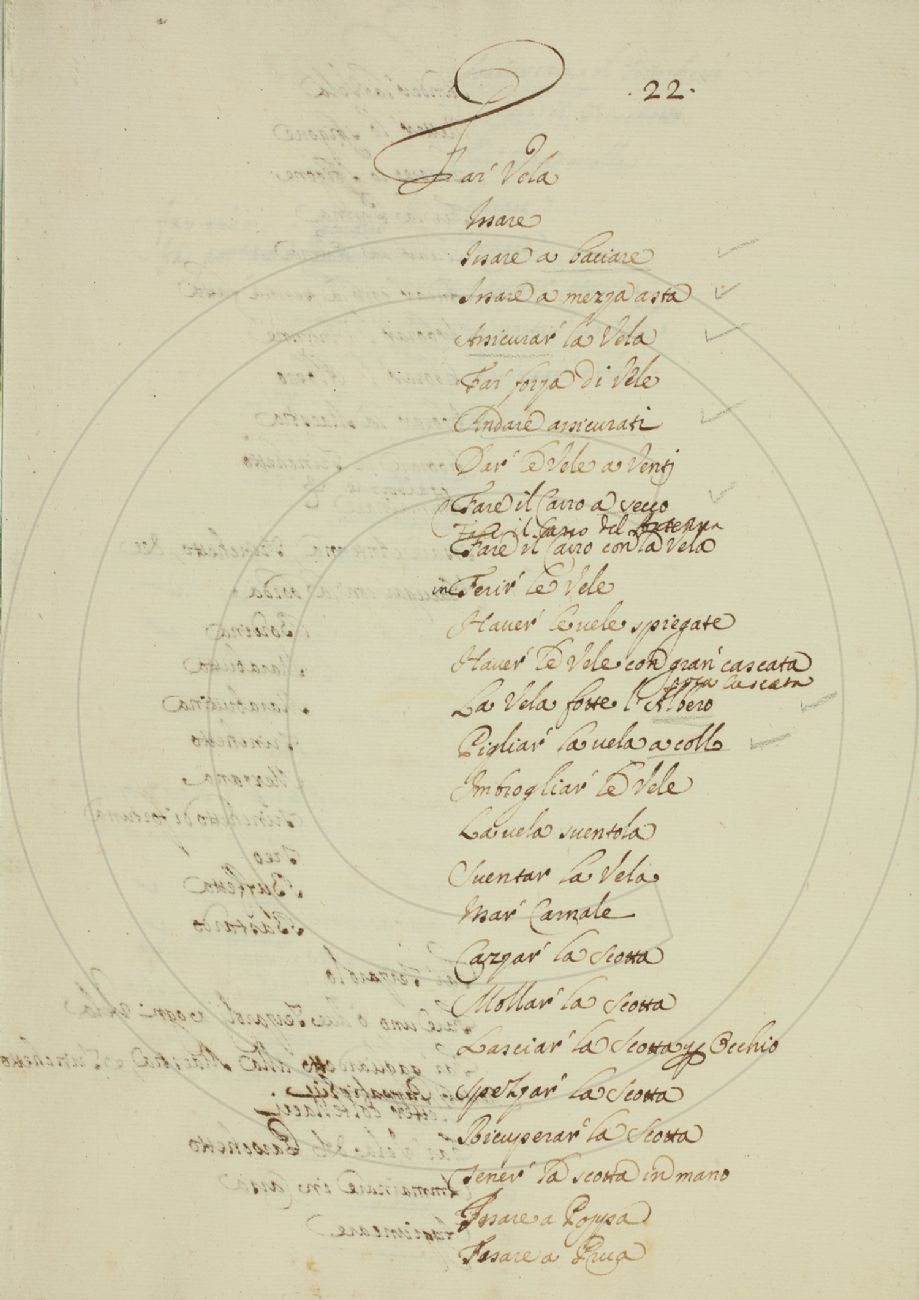 .22.
Far' Vela
Issare
Issare a baciare
Issare a mezza asta
Assicurar' la Vela
Far' forza di Vele
Andare assicurati
Dar' le Vele a Venti
Fare il Carro a secco
il Carro del Antenna
Fare il Carro con la Vela
in Ferir' le Vele
Haver' le vele spiegate
Haver' le Vele con gran' cascata
poca cascata
La Vela fotte l'Albero
Pigliar' la vela a coll
Imbrogliar' le Vele
La vela sventola
Sventar' la Vela
Mar' Carnale
Cazzar' la Scotta
Mollar' la Scotta
Lasciar' la Scotta p Occhio
Spezzar' la Scotta
Ricuperar' la Scotta
Tener' la scotta in mano
Issare a Poppa
Issare a Prua